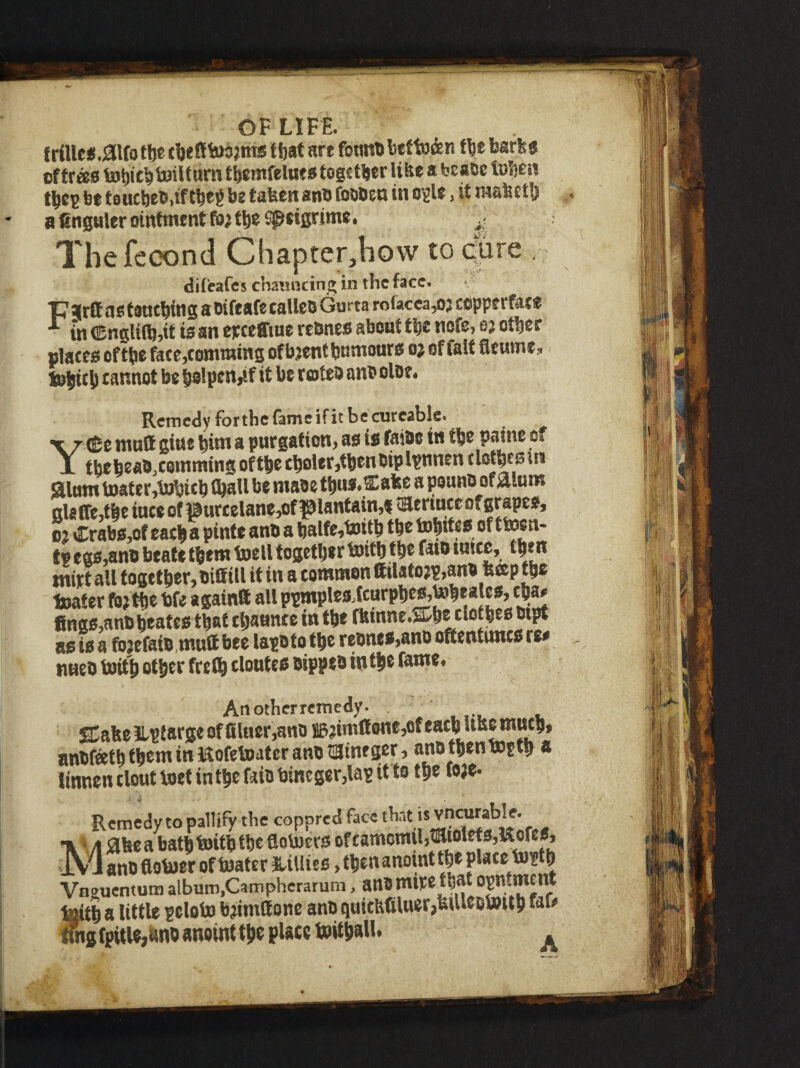 OF LIFE.
trilles. Also the chestwormes that are found betwéen the barks
of trées which wil turn themselues together like a beade when
they be touched, if they be taken and sodden in oyle, it maketh
a singuler ointment for the Meigrime.
The second Chapter, how to cure
diseases chauncing in the face.
First as touching a disease called Gutta rosacea, or copperface
in English, it is an excessiue rednes about the nose, or other
places of the face, comming of brent humours or of salt fleume,
which cannot be holpen, if it be rooted and olde.
Remedy for the same if it be cureable.
YEe must giue him a purgation, as is saide in the paine of
the head, comming of the choler, then dip lynnen clothes in
Alum water, which shall be made thus. Take a pound of Alum
glasse, the iuce of Purcelane, of Plantain, & Veriuce of grapes,
or Crabs, of each a pinte and a halfe, with the whites of twen-
ty egs, and beate them well together with the said iuice, then
mixt all together, distill it in a common stilatory, and kéep the
water for the vse against all pymples, scurphes, wheales, cha-
fings, and heates that chaunce in the skinne. The clothes dipt
as is aforesaid must bee layd to the rednes, and oftentimes re-
nued with other fresh cloutes dipped in the same.
An other remedy.
Take Lytarge of siluer, and Brimstone, of each like much,
and séeth them in Rosewater and Vineger, and then wyth a
linnen clout wet in the said vineger, lay it to the sore.
Remedy to pallify the coppred face that is vncurable.
MAke a bath with the flowers of camomil, Violets, Roses,
and flower of water Lillies, then anoint the place wyth
Vnguentum album, Campherarum, and mixe that oyntment
with a little yelow brimstone and quicksiluer, killed with fas-
ting spitle, and anoint the place withall.
A